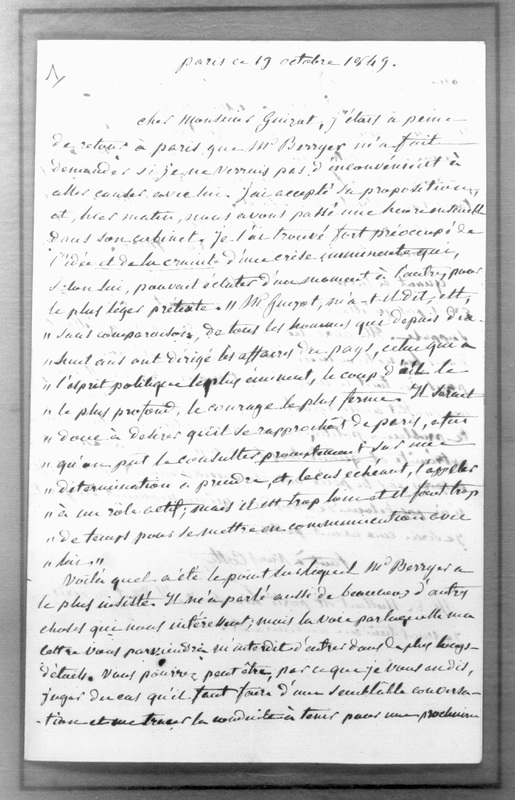 paris ce 19 octobre 1849.
cher Monsieur Guizot, j'étais à peine
de retour à paris que Mr Berryer m'a fait
demander si je ne verrais pas d'inconvénient à
aller causer avec lui. J'ai accepté sa proposition,
et, hier matin, nous avons passé une heure ensemble
dans son cabinet. Je l'ai trouvé fort préoccupé de
l'idée et de la crainte d'une crise imminente qui,
selon lui, pouvait éclater d'un moment à l'autre, pour
le plus léger prétexte. " Mr Guizot, m'a-t-il dit, est,
" sans comparaison, de tous les hommes qui depuis dix-
" huit ans ont dirigé les affaires du pays, celui qui a
" l'esprit politique le plus éminent, le coup d'œil le
" le plus profond, le courage le plus ferme. Il serait
" donc à désirer qu'il se rapprochât de paris, afin
" qu'on pût le consulter promptement sur une
" détermination à prendre, et, le cas échéant, l'appeler
" à un rôle actif; mais il est trop loin et il faut trop
" de temps pour se mettre en communication avec
" lui. "
Voilà quel a été le point sur lequel Mr Berryer a
le plus insisté. Il m'a parlé aussi de beaucoup d'autres
choses qui nous intéressent, mais la voie par laquelle ma
lettre vous parviendra m'interdit d'entrer dans de plus longs
détails. Vous pourrez peut être, par ce que je vous en dis,
juger du cas qu'il faut faire d'une semblable conversa-
-tion et me tracer la conduite à tenir pour une prochaine